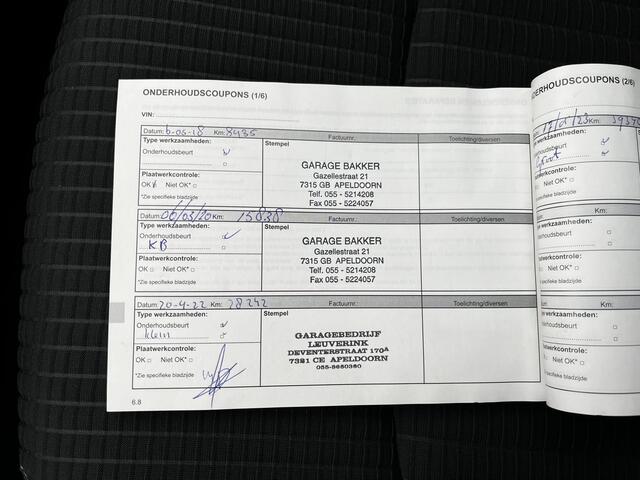 ONDERHOUDSCOUPONS (1/6)
VIN:
Datum: 6-03-18 Km: 8435 Factuurnr. Toelichting/diversen
Type werkzaamheden: Stempel
Onderhoudsbeurt
GARAGE BAKKER
Gazellestraat 21
7315 GB APELDOORN
Telf. 055 - 5214208
Fax 055 - 5224057
Plaatwerkcontrole:
OK Niet OK*
*Zie specifieke bladzijde
Datum: 06/03/20 Km: 15838 Factuurnr. Toelichting/diversen
Type werkzaamheden: Stempel
Onderhoudsbeurt
KB
GARAGE BAKKER
Gazellestraat 21
7315 GB APELDOORN
Telf. 055 - 5214208
Fax 055 - 5224057
Plaatwerkcontrole:
OK Niet OK*
*Zie specifieke bladzijde
Datum: 20-4-22 Km: 28242 Factuurnr. Toelichting/diversen
Type werkzaamheden: Stempel
Onderhoudsbeurt
klein
GARAGEBEDRIJF
LEUVERINK
DEVENTERSTRAAT 170A
7321 CE APELDOORN
055-8650360
Plaatwerkcontrole:
OK Niet OK*
*Zie specifieke bladzijde
6.8
ERHOUDSCOUPONS (2/6)
Km:
en werkzaamheden:
derhoudsbeurt
aatwerkcontrole:
Niet OK*
specifieke bladzijde
Km:
werkzaamheden:
erhoudsbeurt
twerkcontrole:
Niet OK*
ecifieke bladzijde
Km:
werkzaamheden:
houdsbeurt
erkcontrole:
Niet OK*
ieke bladzijde